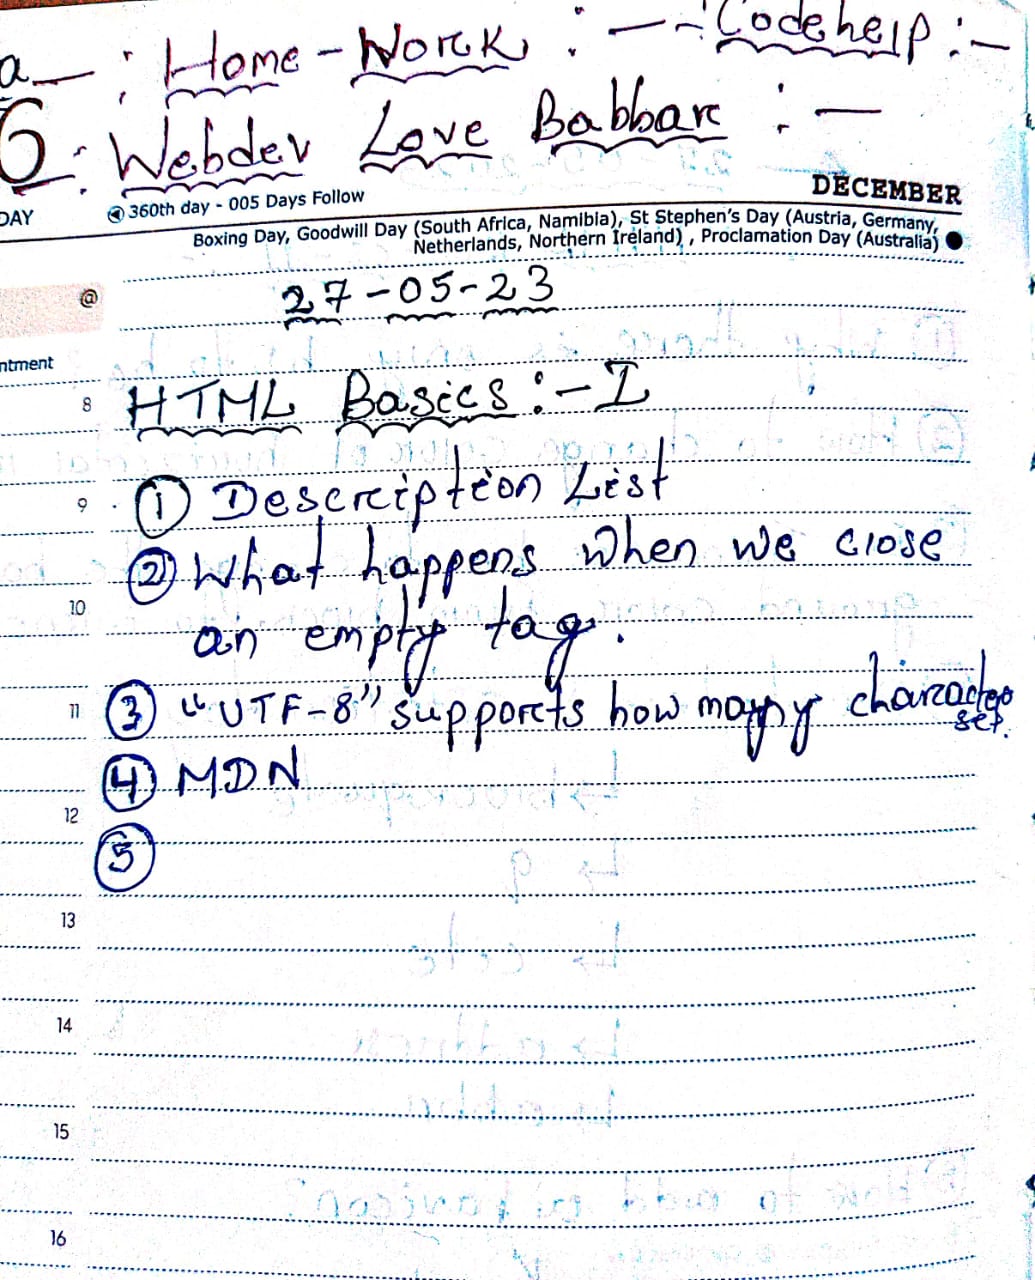 a — : Home - Work : — - Codehelp : —
6 : Webdev Love Babbar : —
DAY 360th day - 005 Days Follow DECEMBER
Boxing Day, Goodwill Day (South Africa, Namibia), St Stephen's Day (Austria, Germany,
Netherlands, Northern Ireland) , Proclamation Day (Australia)
@ 27-05-23
ntment
8 HTML Basics : - I
9 ① Description List
② What happens when we close
10 an empty tag.
11 ③ "UTF-8" supports how many character
set.
④ MDN
12
⑤
13
14
15
16